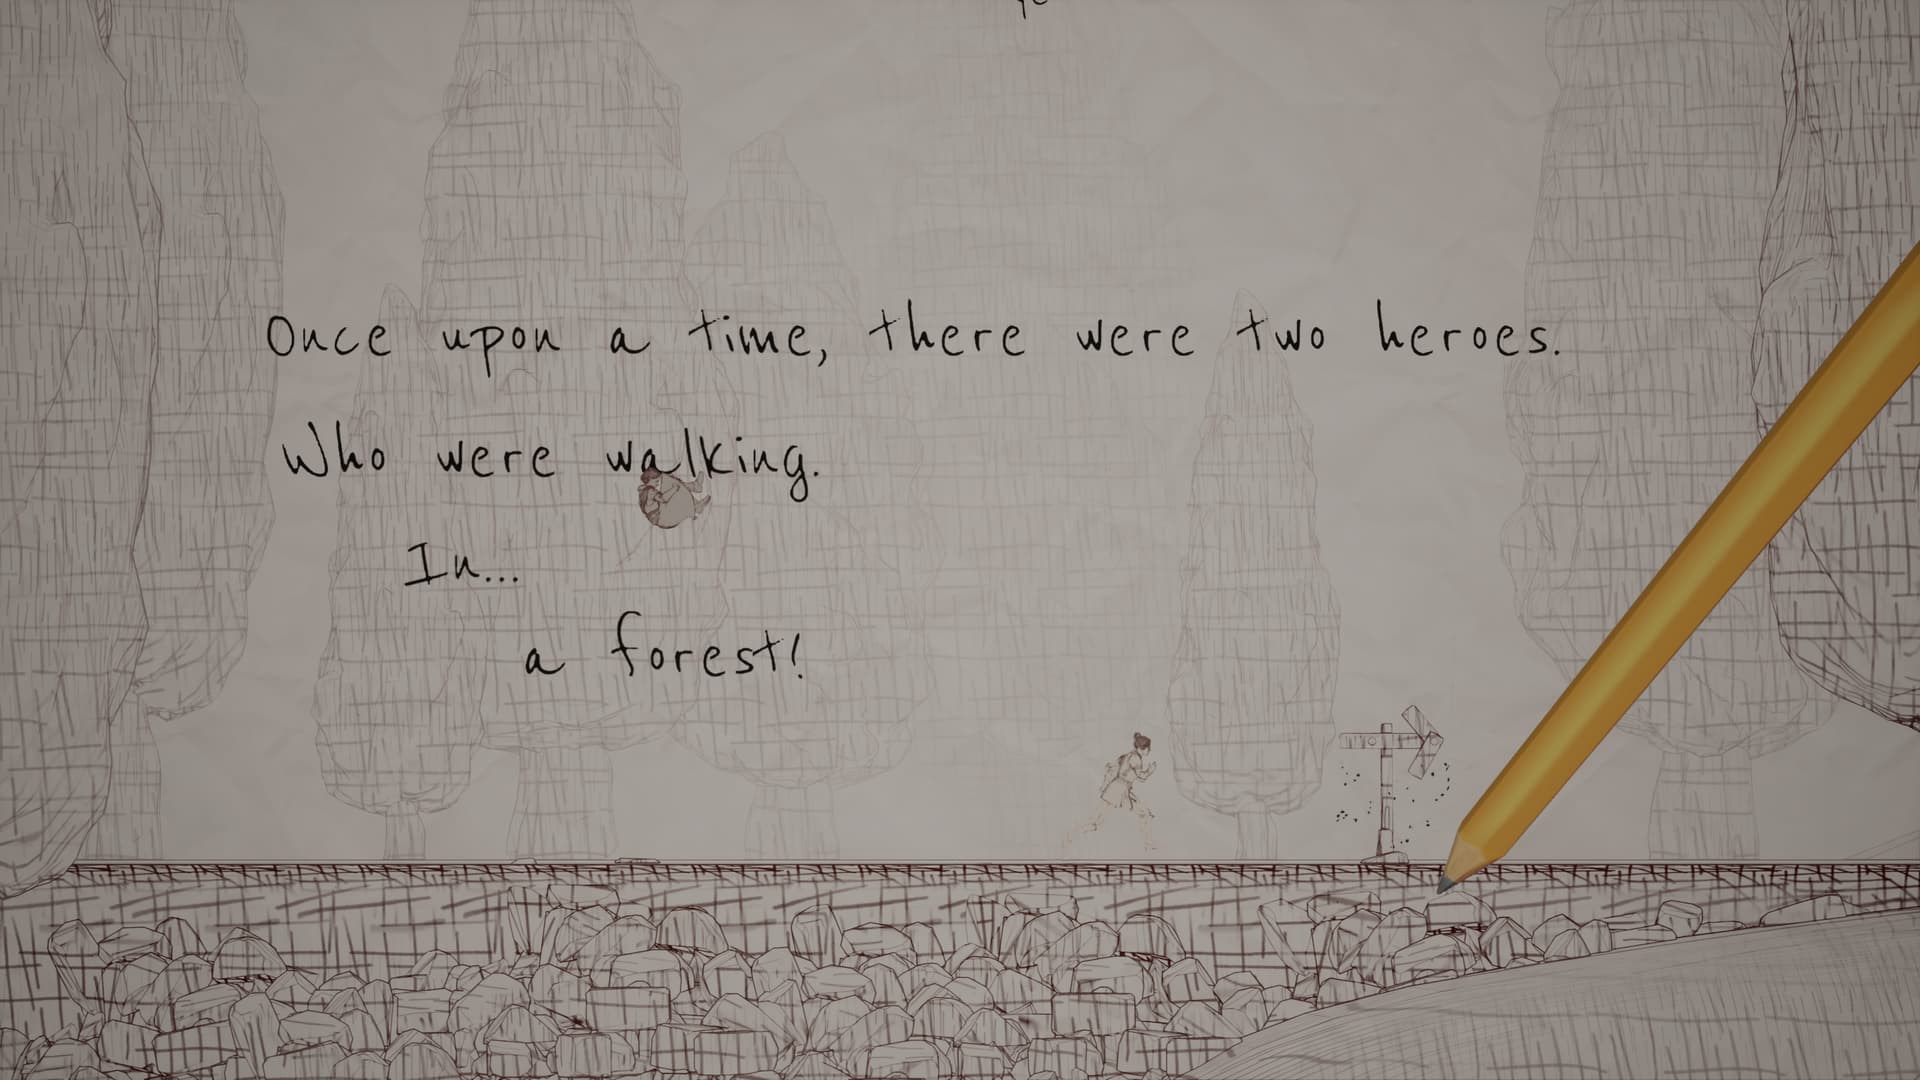 Once upon a time, there were two heroes.
Who were walking.
In...
a forest!